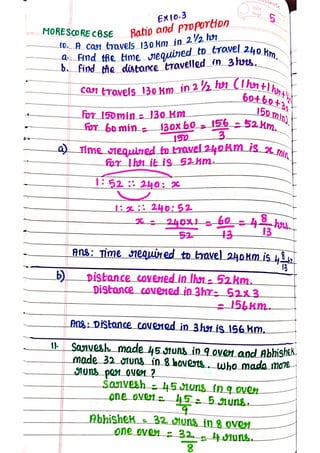 EX10.3
5
MORESCORECBSE Ratio and proportion
10. A can travels 130 km in 2 1/2 hr
a. Find the time required to travel 240 km.
b. Find the distance travelled in 3 hrs.
can travels 130 km in 2 1/2 hr (1hr+1hr+
60+60+3
150 min
For 150min = 130 km
For 60 min = 130x60/150 = 156/3 = 52 km.
a) Time required to travel 240km is x min
For 1hr it is 52 km.
1:52 :: 240: x
1:x :: 240:52
x = 240x1/52 = 60/13 = 4 8/13 hrs.
Ans: Time required to travel 240km is 4 8/13
b) Distance covered in 1hr = 52km.
Distance covered in 3hr = 52x3
= 156km.
Ans: Distance covered in 3hr is 156 km.
11. Sarvesh made 45 runs in 9 over and Abhishek
made 32 runs in 8 hovers. who mada more
runs per over?
Sarvesh = 45 runs in 9 over
one over = 45/9 = 5 runs.
Abhishek = 32 runs in 8 over
one over = 32/8 = 4 runs.